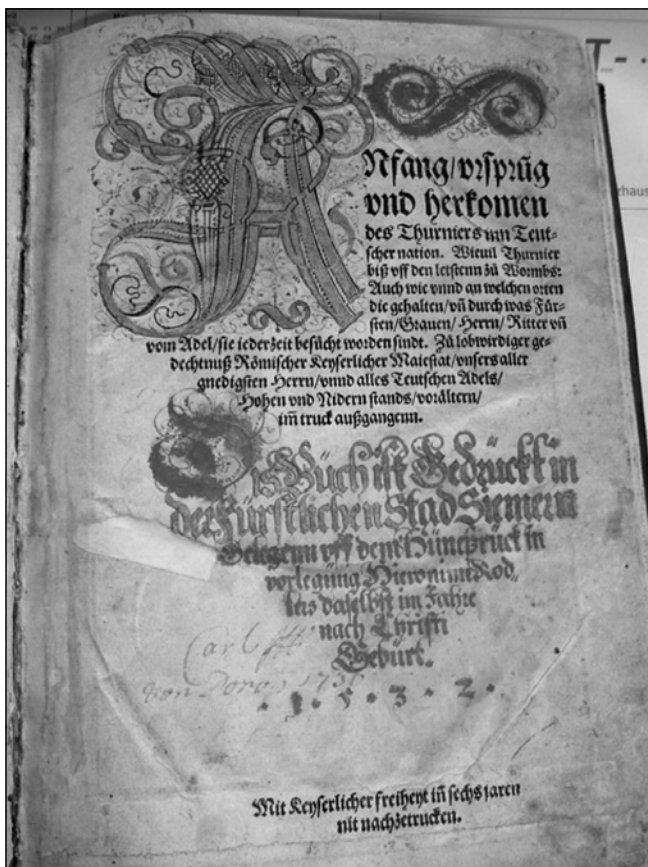 ANfang/vrsprūg
vnd herkomen
des Thurniers inn Teut-
scher nation. Wieuil Thurnier
biß vff den letstenn zů Wormbs:
Auch wie vnnd an welchen orten
die gehalten/vñ durch was Für-
sten/Grauen/Herrn/Ritter vñ
vom Adel/sie iederzeit besůcht worden sindt. Zů lobwirdiger ge-
dechtnuß Römischer Keyserlicher Maiestat/vnsers aller
gnedigsten Herrn/vnnd alles Teutschen Adels/
Hohen vnd Nidern stands/vorältern/
im̄ truck außgangenn.
Dis Bůch ist Gedrůckt in
der Fürstlichen Stad Siemern
Gelegenn vff dem Hünesrůck in
vorlegůng Hieronimi Rod-
lers daselbst im Jahre
nach Cyristi
Gebürt.
Carl
von Dorop 1731
.1.5.3.2.
Mit Keyserlicher freiheyt in̄ sechs jaren
nit nachzetrucken.
T-
zhaus